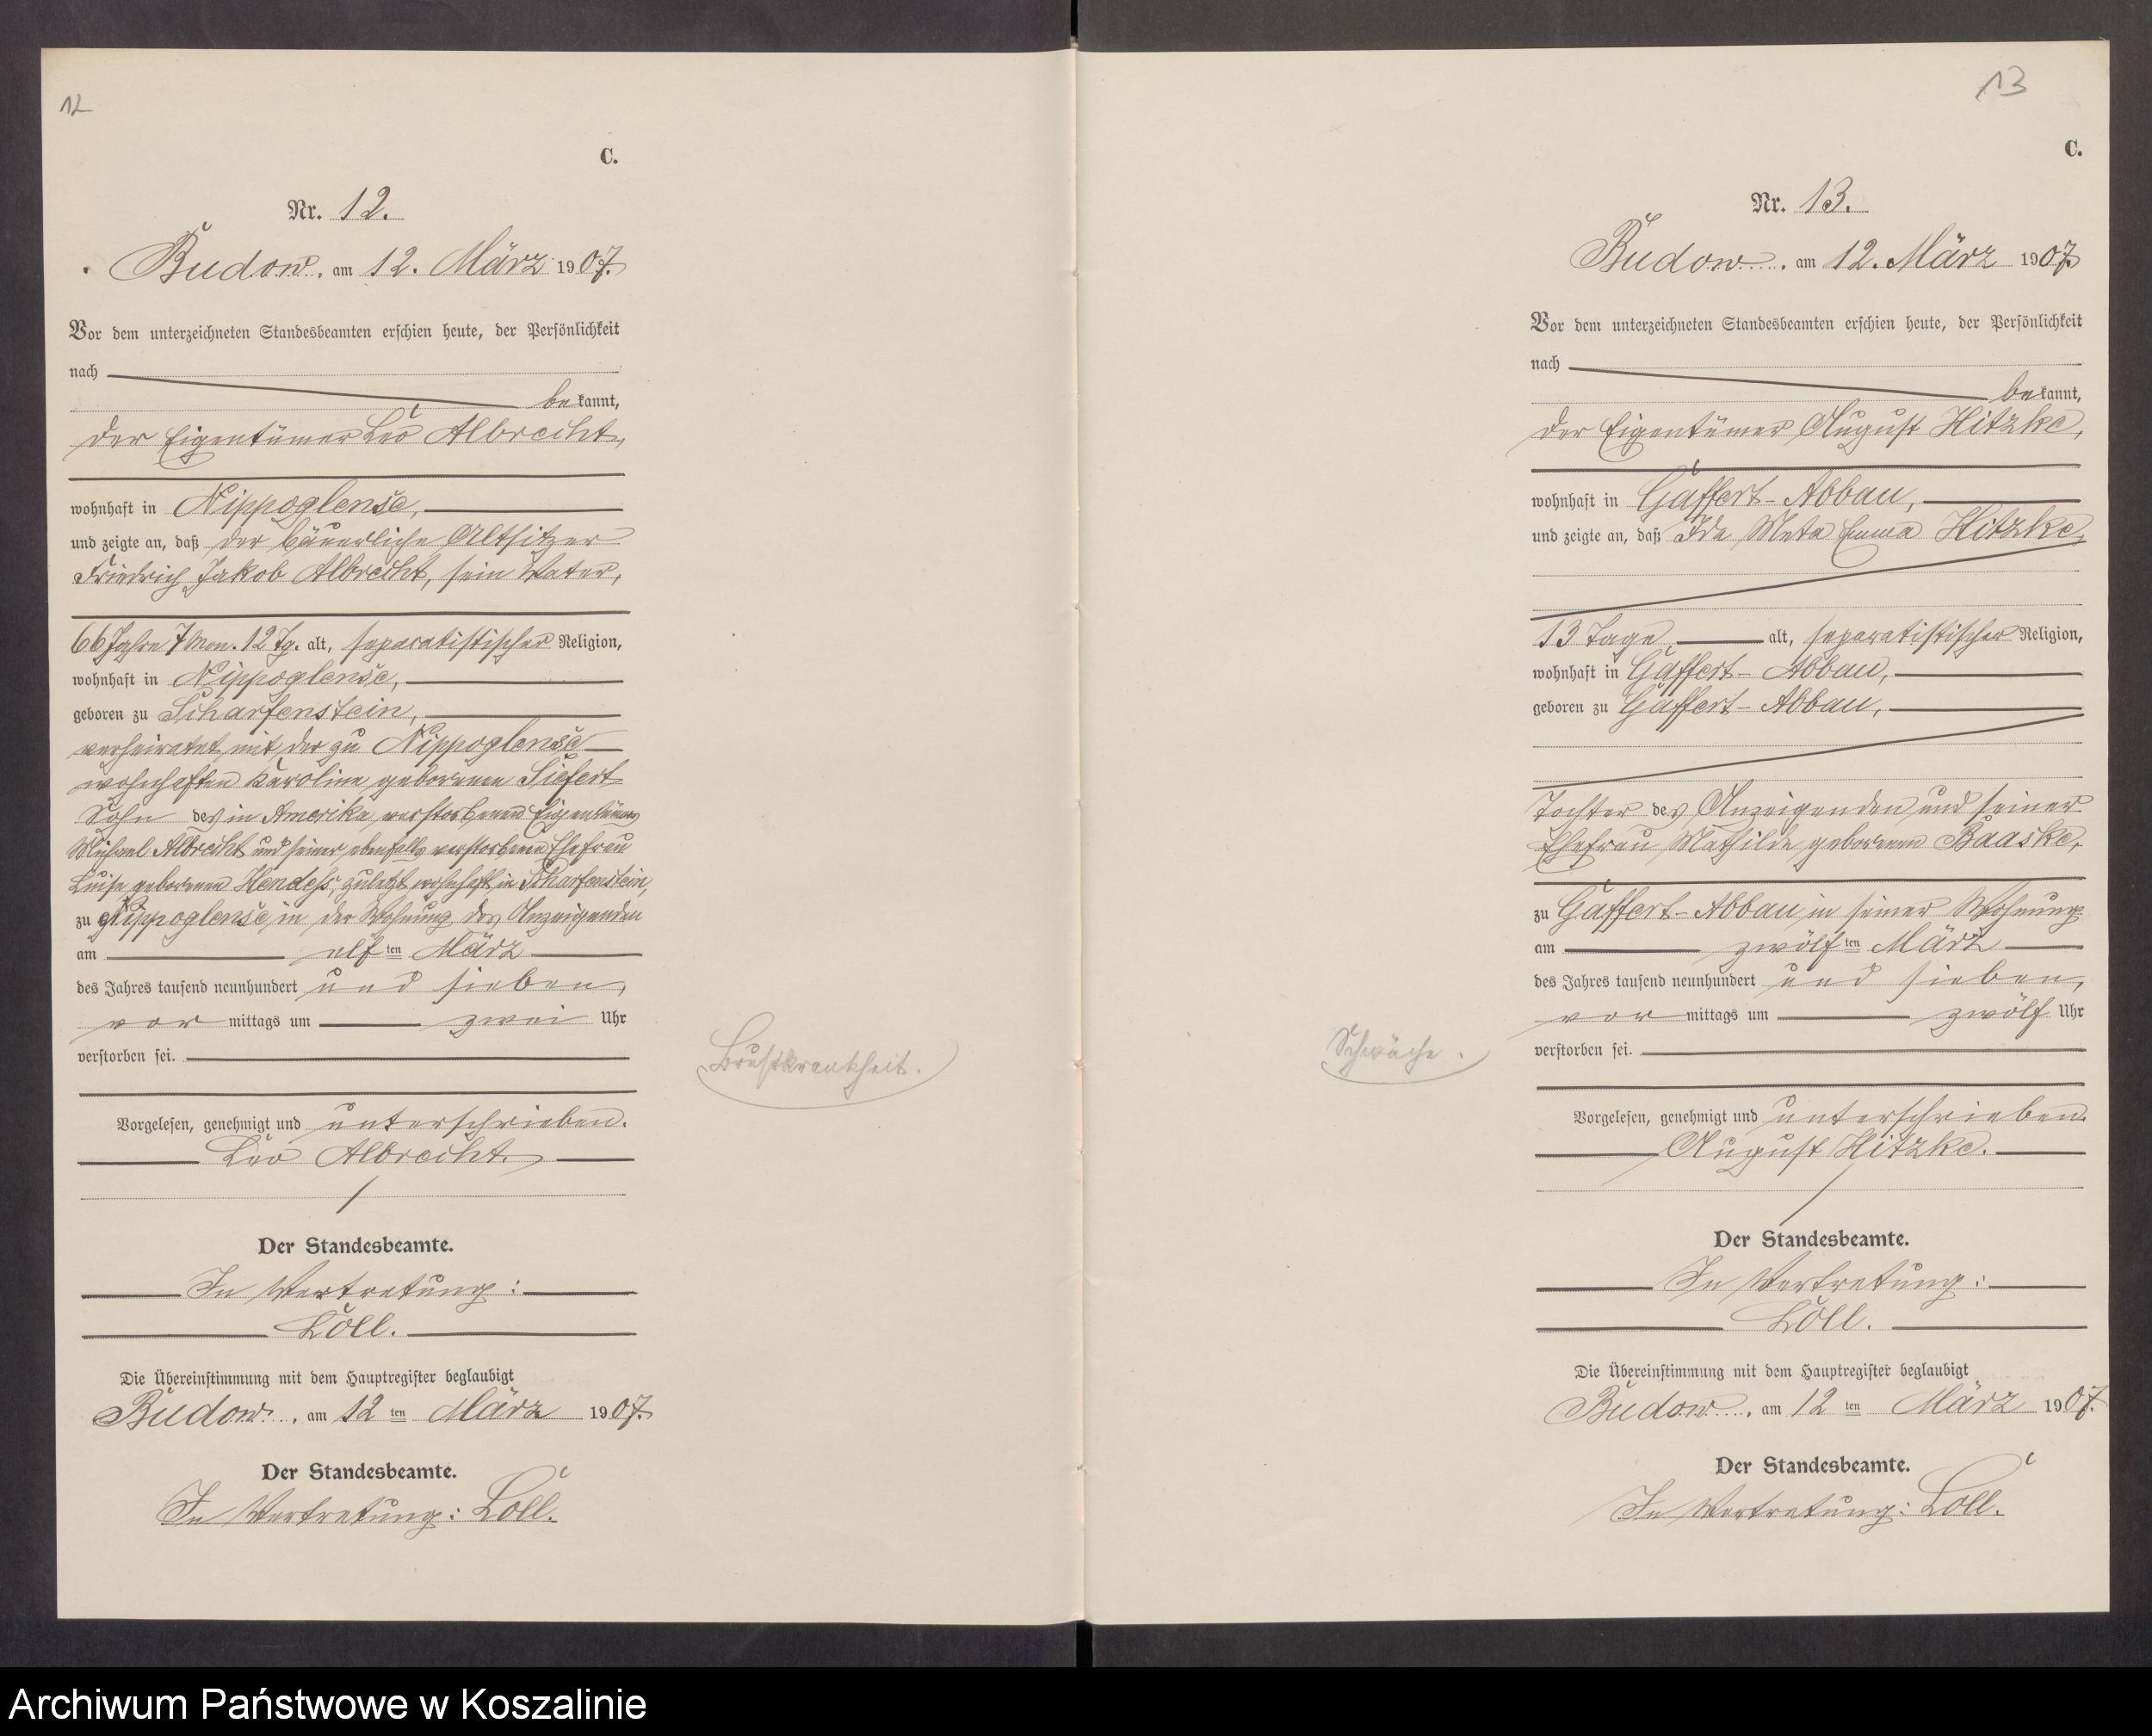 12
C.
Nr. 12.
Budow, am 12. März 1907.
Vor dem unterzeichneten Standesbeamten erschien heute, der Persönlichkeit
nach
bekannt,
der Eigentümer Leo Albrecht,
wohnhaft in Nippoglense,
und zeigte an, daß der bäuerliche Altsitzer
Friedrich Jakob Albrecht, sein Vater,
66 Jahre 7 Mon. 12 Tg. alt, separatistischer Religion,
wohnhaft in Nippoglense,
geboren zu Scharfenstein,
verheiratet mit der zu Nippoglense
wohnhaften Karoline geborenen Siefert
Sohn des in Amerika verstorbenen Eigentümers
Michael Albrecht und seiner ebenfalls verstorbenen Ehefrau
Luise geborenen Hendess, zuletzt wohnhaft in Scharfenstein,
zu Nippoglense, in der Wohnung des Anzeigenden
am elften März
des Jahres tausend neunhundert und sieben,
vor mittags um zwei Uhr
verstorben sei.
Brustkrankheit.
Vorgelesen, genehmigt und unterschrieben.
Leo Albrecht.
Der Standesbeamte.
In Vertretung:
Loll.
Die Übereinstimmung mit dem Hauptregister beglaubigt
Budow, am 12 ten März 1907.
Der Standesbeamte.
In Vertretung: Loll.
13
C.
Nr. 13.
Budow, am 12. März 1907.
Vor dem unterzeichneten Standesbeamten erschien heute, der Persönlichkeit
nach
bekannt,
der Eigentümer August Hitzke,
wohnhaft in Gaffert-Abbau,
und zeigte an, daß Ida Meta Emma Hitzke,
13 Tage alt, separatistischer Religion,
wohnhaft in Gaffert-Abbau,
geboren zu Gaffert-Abbau,
Tochter des Anzeigenden und seiner
Ehefrau Mathilde geborenen Baaske,
zu Gaffert-Abbau, in seiner Wohnung
am zwölften März
des Jahres tausend neunhundert und sieben,
vor mittags um zwölf Uhr
verstorben sei.
Schwäche.
Vorgelesen, genehmigt und unterschrieben.
August Hitzke.
Der Standesbeamte.
In Vertretung:
Loll.
Die Übereinstimmung mit dem Hauptregister beglaubigt
Budow, am 12 ten März 1907.
Der Standesbeamte.
In Vertretung: Loll.
Archiwum Państwowe w Koszalinie